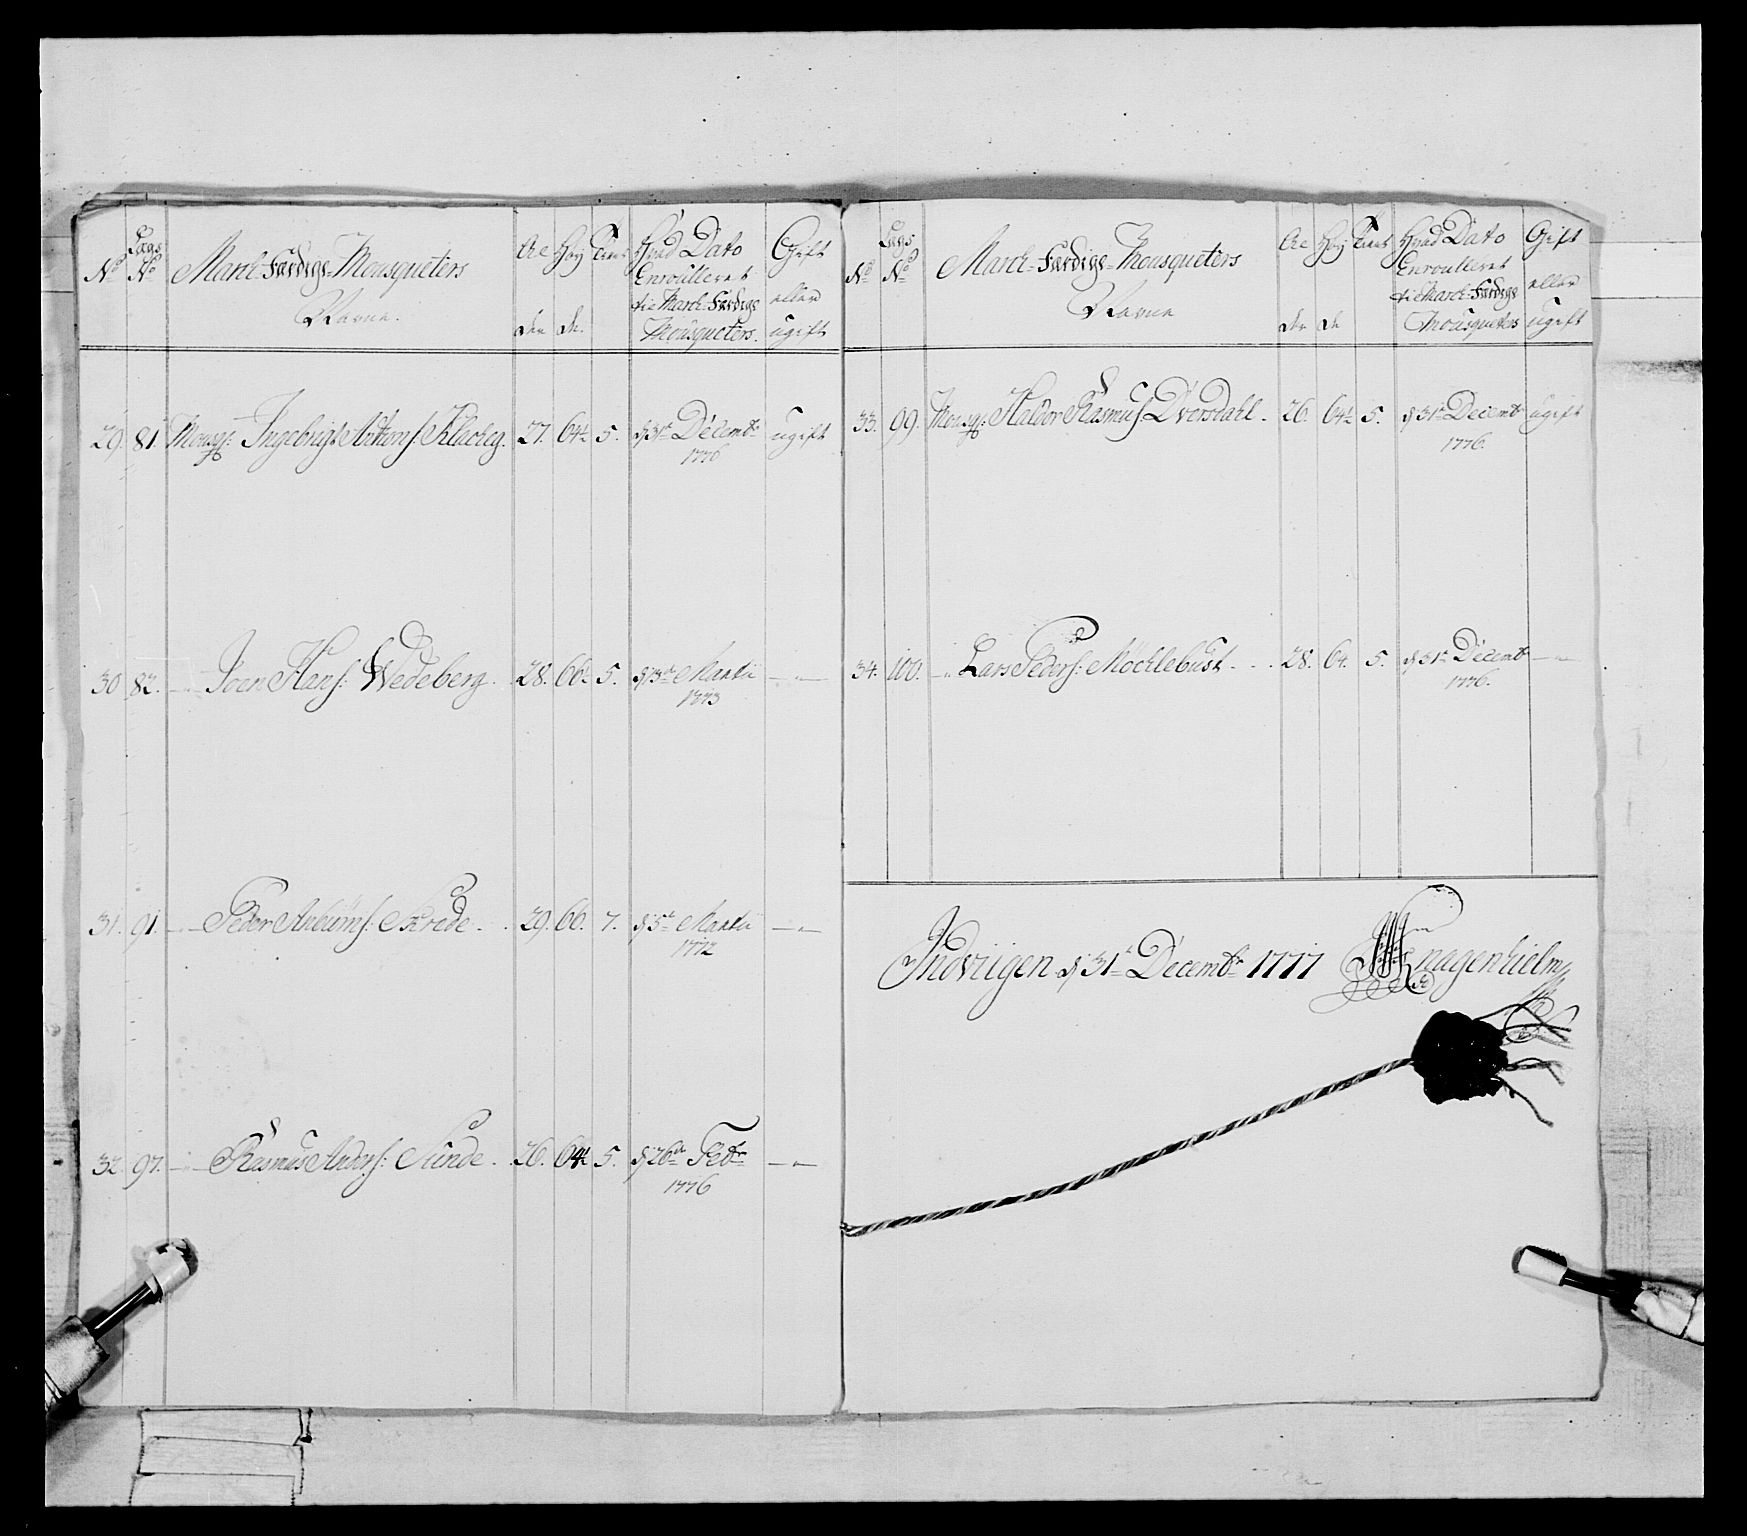 No
Lægs No
March-Færdige-Mousqueters
Navne.
Al der
Høy de.
Tient
Hvad Dato
Enroulleret
til March-Færdige
Mousqueters.
Gift
eller
ugift
29. 81. Mousq: Ingebrigt Anthons: 27. 64½ 5. d 31te Decembr ugift
1776
30 82. —"— Joen Hans: Wedeberg. 28. 66½ 5. d 13de Martii —"—
1773
31. 91. —"— Peder Anbiørns: Skrede. 29. 66. 7. d 5te Martii —"—
1772
32. 97. —"— Rasmus Anders: Sunde. 26. 64½ 5. d 26de Febr —"—
1776
No
Lægs No
March-Færdige-Mousqueters
Navne
Al der
Høy de
Tient
Hvad Dato
Enroulleret
til March-Færdige
Mousqueters
Gift
eller
ugift
33. 99. Mousq: Haldor Rasmus: Dversdahl. 26. 64½ 5. d 31te Decembr ugift
1776.
34. 100. —"— Lars Peders: Møchlebust. 28. 64. 5. d 31te Decembr —"—
1776.
Indviigen d 31te Decembr 1777 Knagenhielm